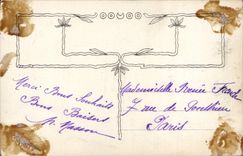 Merci Bons Souhaits
Bons Baisers
M. Masson
Mademoiselle Renée
7 rue de
Paris